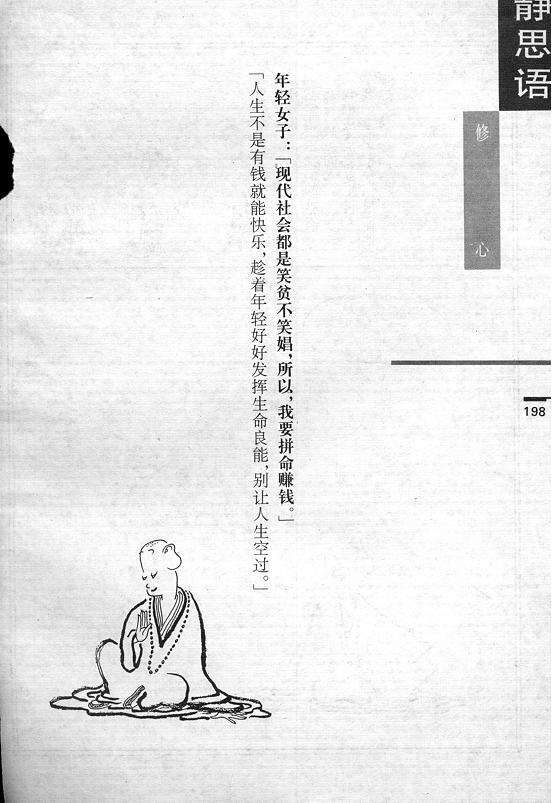 静思语
修心
年轻女子：「现代社会都是笑贫不笑娼，所以，我要拼命赚钱。」
「人生不是有钱就能快乐，趁着年轻好好发挥生命良能，别让人生空过。」
198